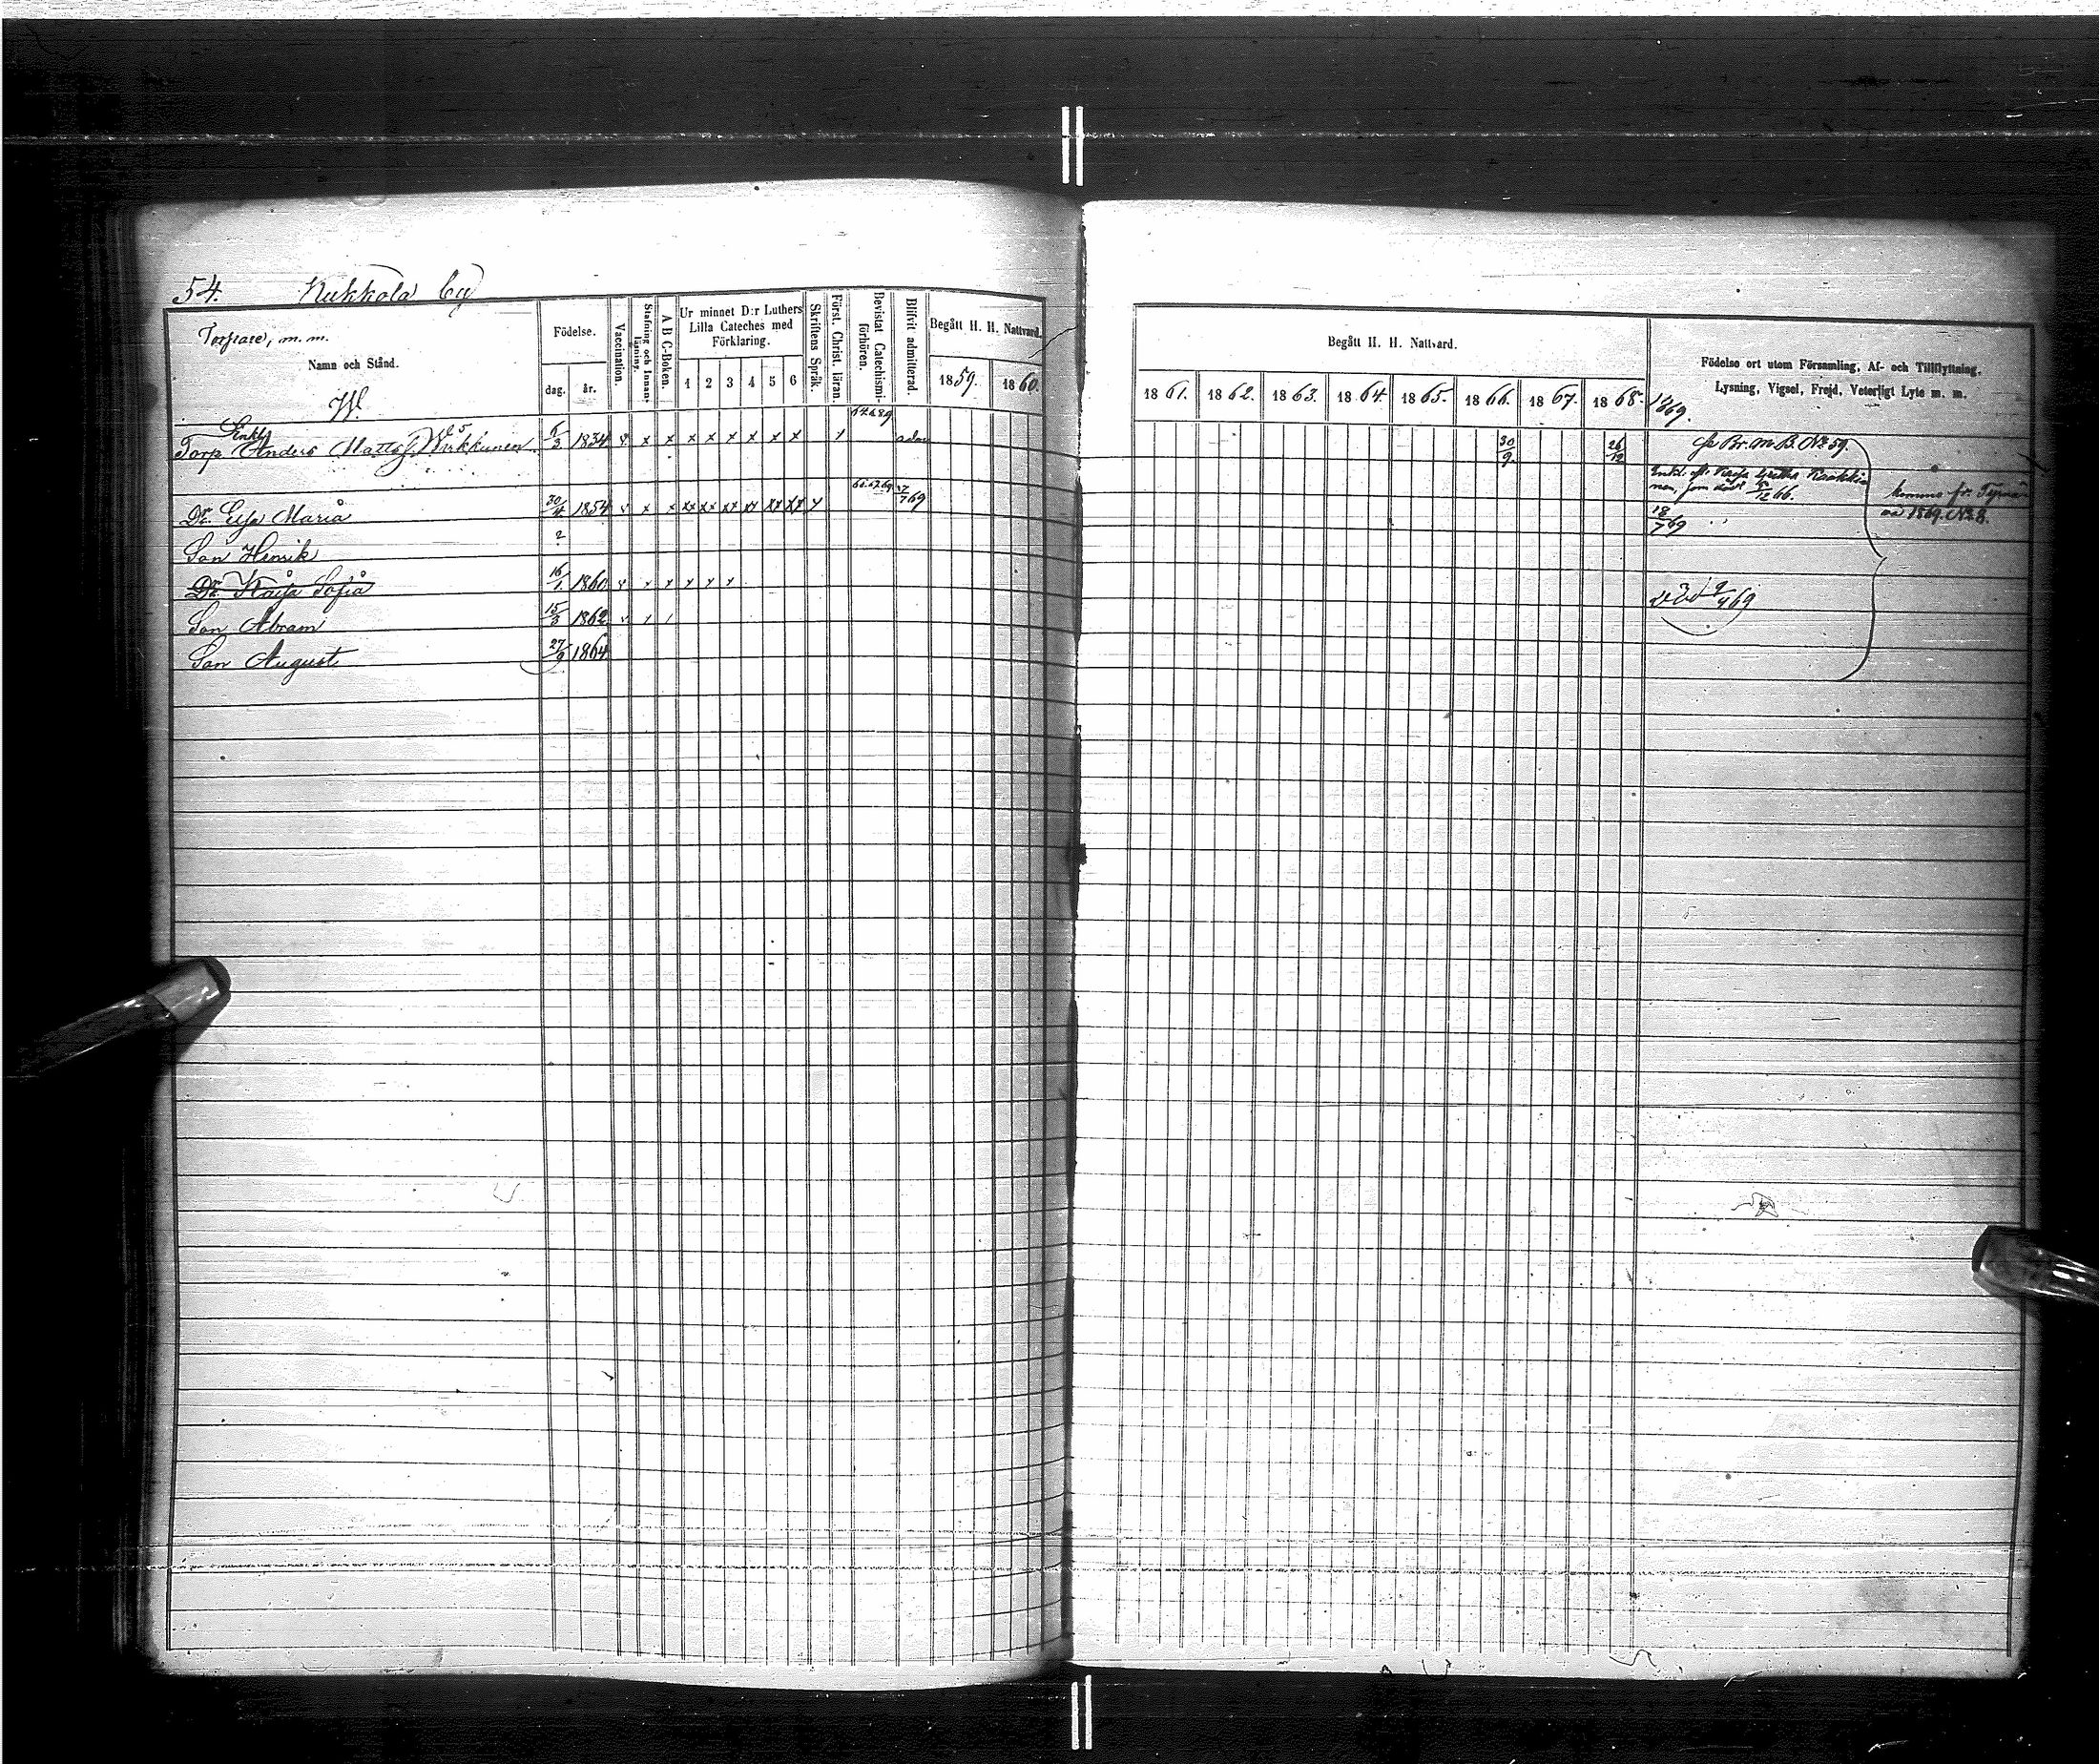 54. Nukkola by
Torpare, m. m.
Namn och Stånd.
W.
Födelse.
dag. år.
Vaccination.
Stafning och Innan-läsning.
A B C-Boken.
Ur minnet D:r Luthers
Lilla Cateches med
Förklaring.
1 2 3 4 5 6
Skriftens Språk.
Först. Christ. läran.
Bevistat Catechismi-förhören.
Blifvit admitterad.
Begått H. H. Nattvard.
1859. 1860.
Begått H. H. Nattvard.
1861. 1862. 1863. 1864. 1865. 1866. 1867. 1868. 1869.
Födelse ort utom Församling, Af- och Tillflyttning.
Lysning, Vigsel, Frejd, Veterligt Lyte m. m.
Enkl.
Torp. Anders Matts. 6/3 1834 v x x x x x x x x adm 30/9 26/12 Br. m. B. No 59.
Enkl. eft. som död 12 66.
Dr. Eva Maria 30/4 1854 v x x xx xx xx xx xx xx 69 18/7 69
komma fr.
1869. No 8.
Son Henrik ?
Dr. Kaisa Sofia 16/1. 1860. v x x x x x död 9/4 69
Son Abram 15/3 1862
Son August 27/9 1864